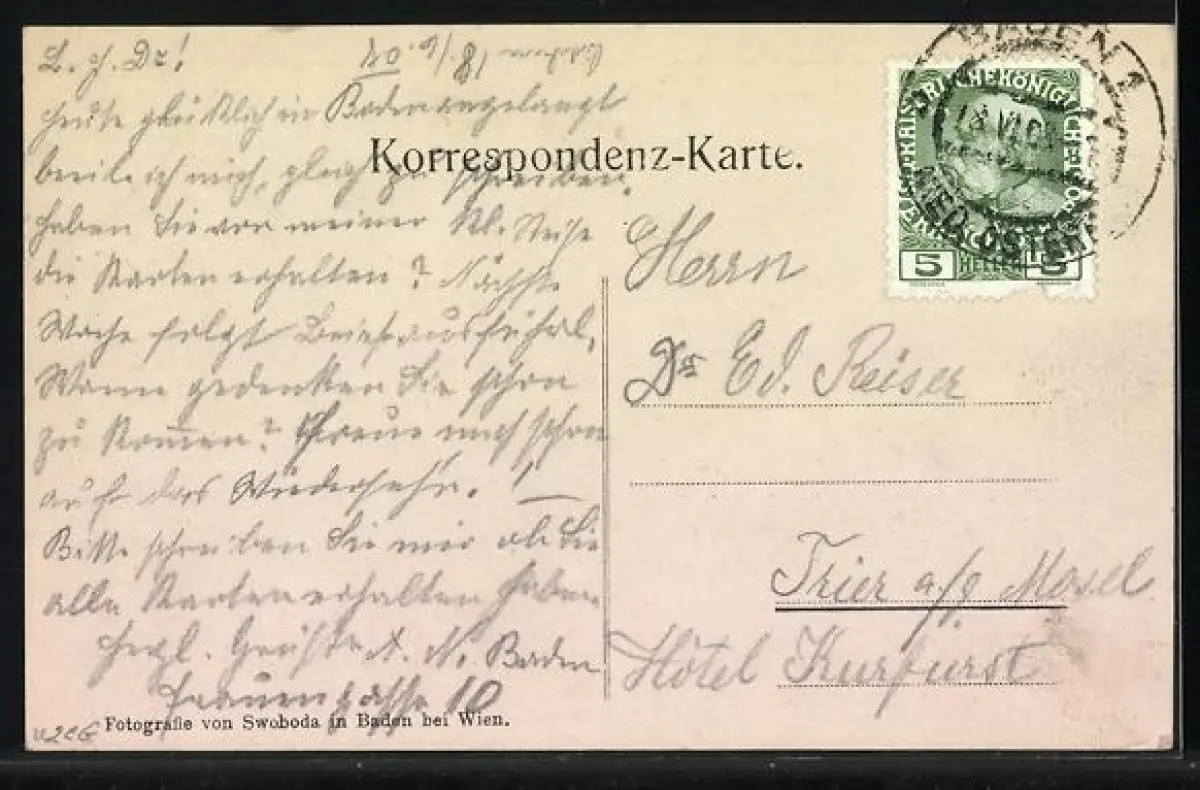 L. H. Dr!
heute glücklich in Baden angelangt
beeile ich mich, gleich zu schreiben.
haben Sie von meiner Kl. Reise
die Karten erhalten? Nächste
Woche folgt Brief ausführl.
Wann gedenken Sie schon
zu kommen? Freue mich schon
auf das Wiedersehn. ! —
Bitte schreiben Sie mir ob Sie
alle Karten erhalten haben
Herzl. Grüße A. N. Baden
Frauengasse 10
Fotografie von Swoboda in Baden bei Wien.
Korrespondenz-Karte.
BADEN 1
18 VI
NIED. ÖSTERR
5 HELLER 5
Herrn
Dr Ed. Reiser
Trier a/g. Mosel
Hôtel Kurfürst